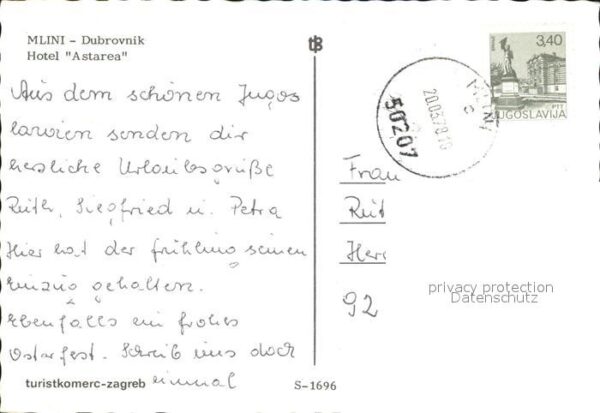 MLINI - Dubrovnik
Hotel "Astarea"
tB
Aus dem schönen Jugos
lawien senden dir
herzliche Urlaubsgrüße
Ruth, Siegfried u. Petra
Hier hat der frühling seinen
einzug gehalten.
ebenfalls ein frohes
Osterfest. Schreib uns doch
einmal
turistkomerc-zagreb
S-1696
3,40
PTT
JUGOSLAVIJA
MLINI
c
20.03.79 10
50207
Frau
Herr
92
privacy protection
Datenschutz